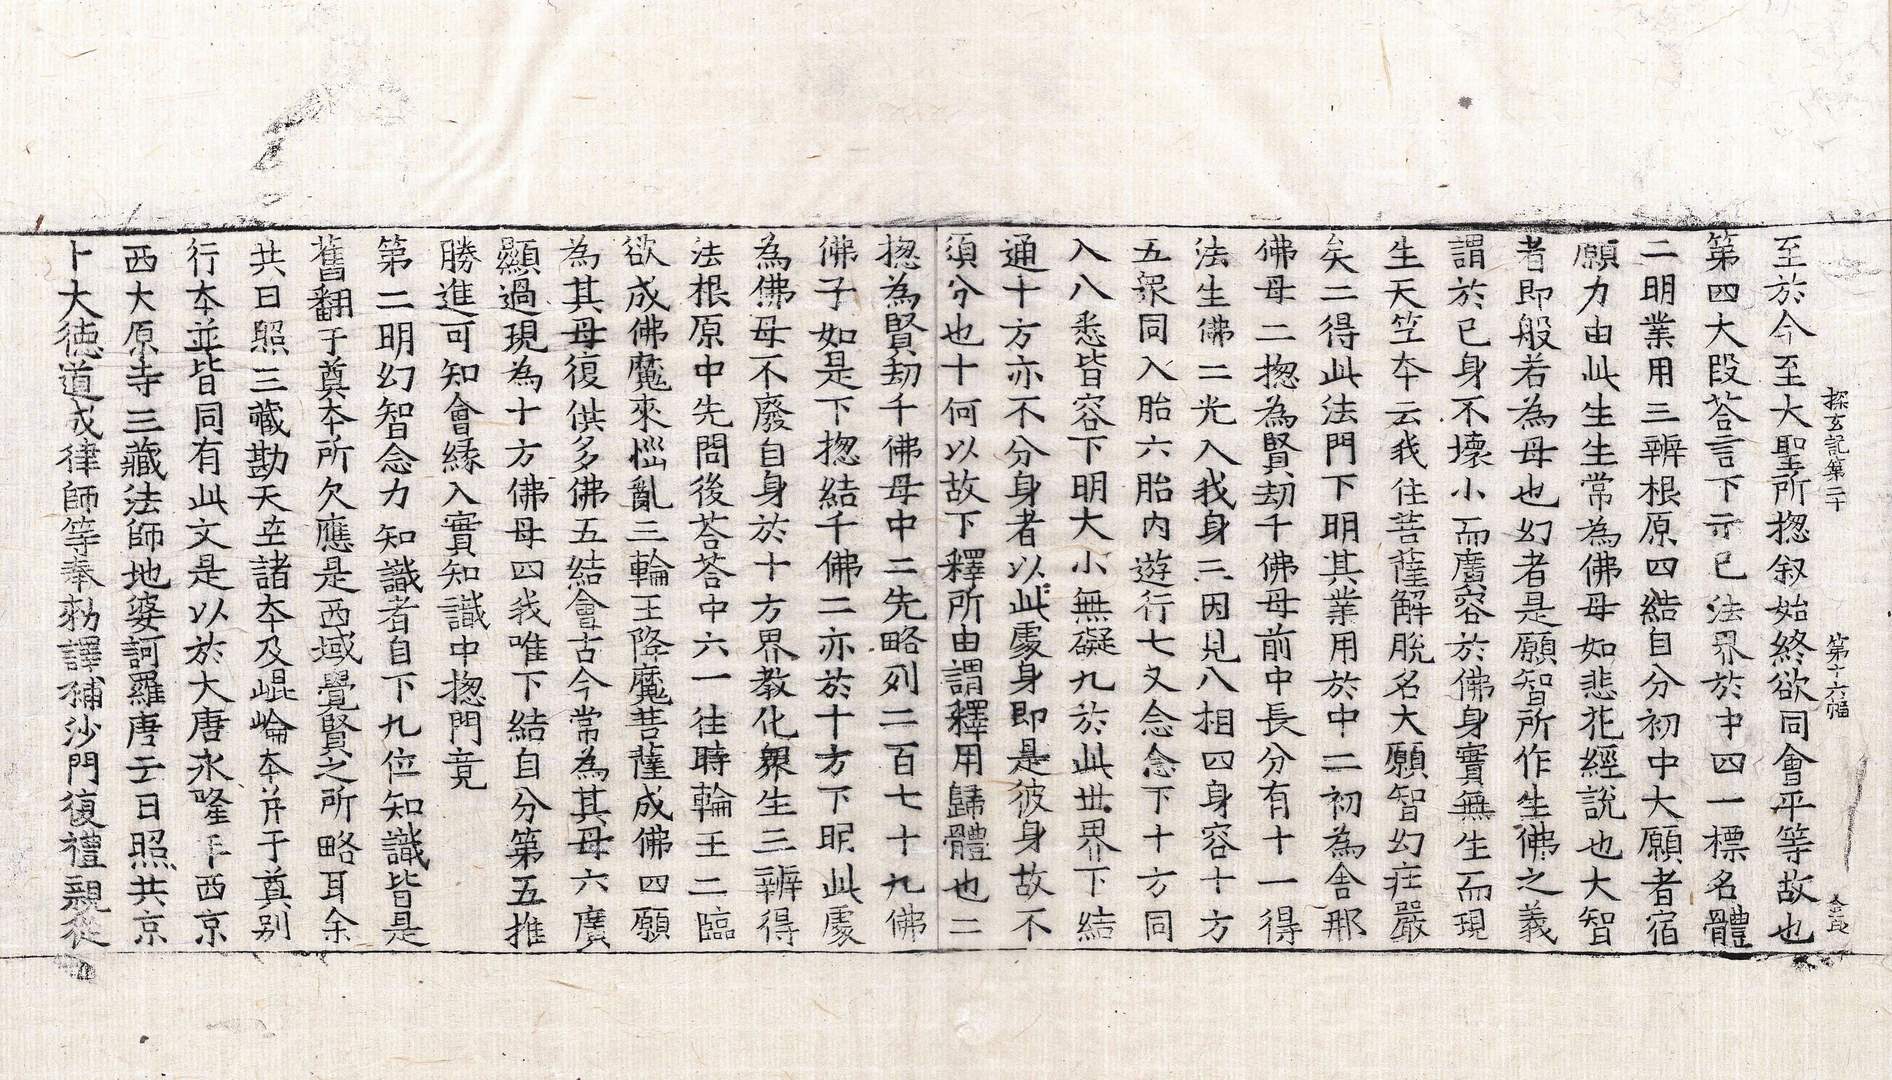 探玄記第二十　第十六幅　仒良
至於今至大聖所揔叙始終欲同會平等故也
第四大段荅言下示已法界於中四一標名體
二明業用三辨根原四結自分初中大願者宿
願力由此生生常為佛母如悲花經說也大智
者即般若為母也幻者是願智所作生佛之義
謂於已身不壞小而廣容於佛身實無生而現
生天笁夲云我住菩薩解脫名大願智幻庄嚴
矣二得此法門下明其業用於中二初為舍那
佛母二揔為賢劫千佛母前中長分有十一得
法生佛二光入我身三因見八相四身容十方
五衆同入胎六胎內遊行七又念念下十方同
入八悉皆容下明大小無礙九於此世界下結
通十方亦不分身者以此處身即是彼身故不
須分也十何以故下釋所由謂釋用歸體也二
揔為賢劫千佛母中二先略列二百七十九佛
佛子如是下揔結千佛二亦於十方下明此處
為佛母不廢自身於十方界教化衆生三辨得
法根原中先問後荅荅中六一往時輪王二臨
欲成佛魔來惱亂三輪王降魔菩薩成佛四願
為其母復供多佛五結會古今常為其母六廣
顯過現為十方佛母四我唯下結自分第五推
勝進可知會緣入實知識中揔門竟
第二明幻智念力知識者自下九位知識皆是
舊翻于奠夲所欠應是西域覺賢之所略耳余
共日照三藏勘天笁諸夲及崐崘夲并于奠別
行夲並皆同有此文是以於大唐永隆年西京
西大原寺三藏法師地婆訶羅唐云日照共京
十大德道成律師等奉勑譯補沙門復禮親從